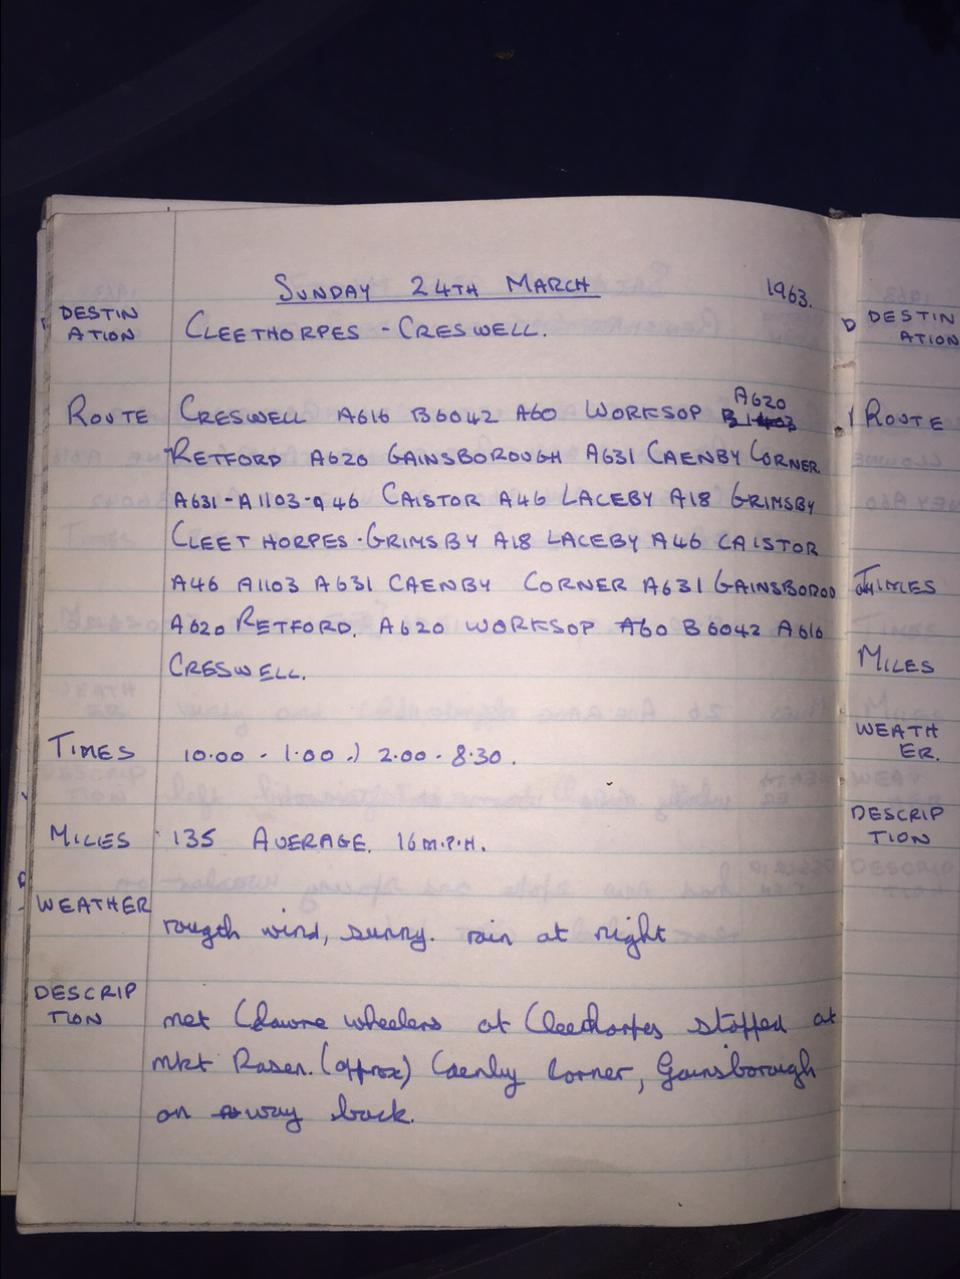 SUNDAY 24TH MARCH 1963.
DESTIN
ATION CLEETHORPES - CRESWELL.
ROUTE CRESWELL A616 B6042 A60 WORKSOP A620
RETFORD A620 GAINSBOROUGH A631 CAENBY CORNER
A631-A1103-A46 CAISTOR A46 LACEBY A18 GRIMSBY
CLEETHORPES.GRIMSBY A18 LACEBY A46 CAISTOR
A46 A1103 A631 CAENBY CORNER A631 GAINSBOROO
A620 RETFORD. A620 WORKSOP A60 B6042 A616
CRESWELL.
TIMES 10.00 - 1.00.) 2.00 - 8.30.
MILES 135 AVERAGE. 16 M.P.H.
WEATHER rough wind, sunny. rain at night
DESCRIP
TION met Clowne wheelers at Cleethorpes stopped at
mkt Rasen. (approx) Caenby Corner, Gainsborough
on way back.
D DESTIN
ATION
ROUTE
TIMES
MILES
WEATH
ER.
DESCRIP
TION